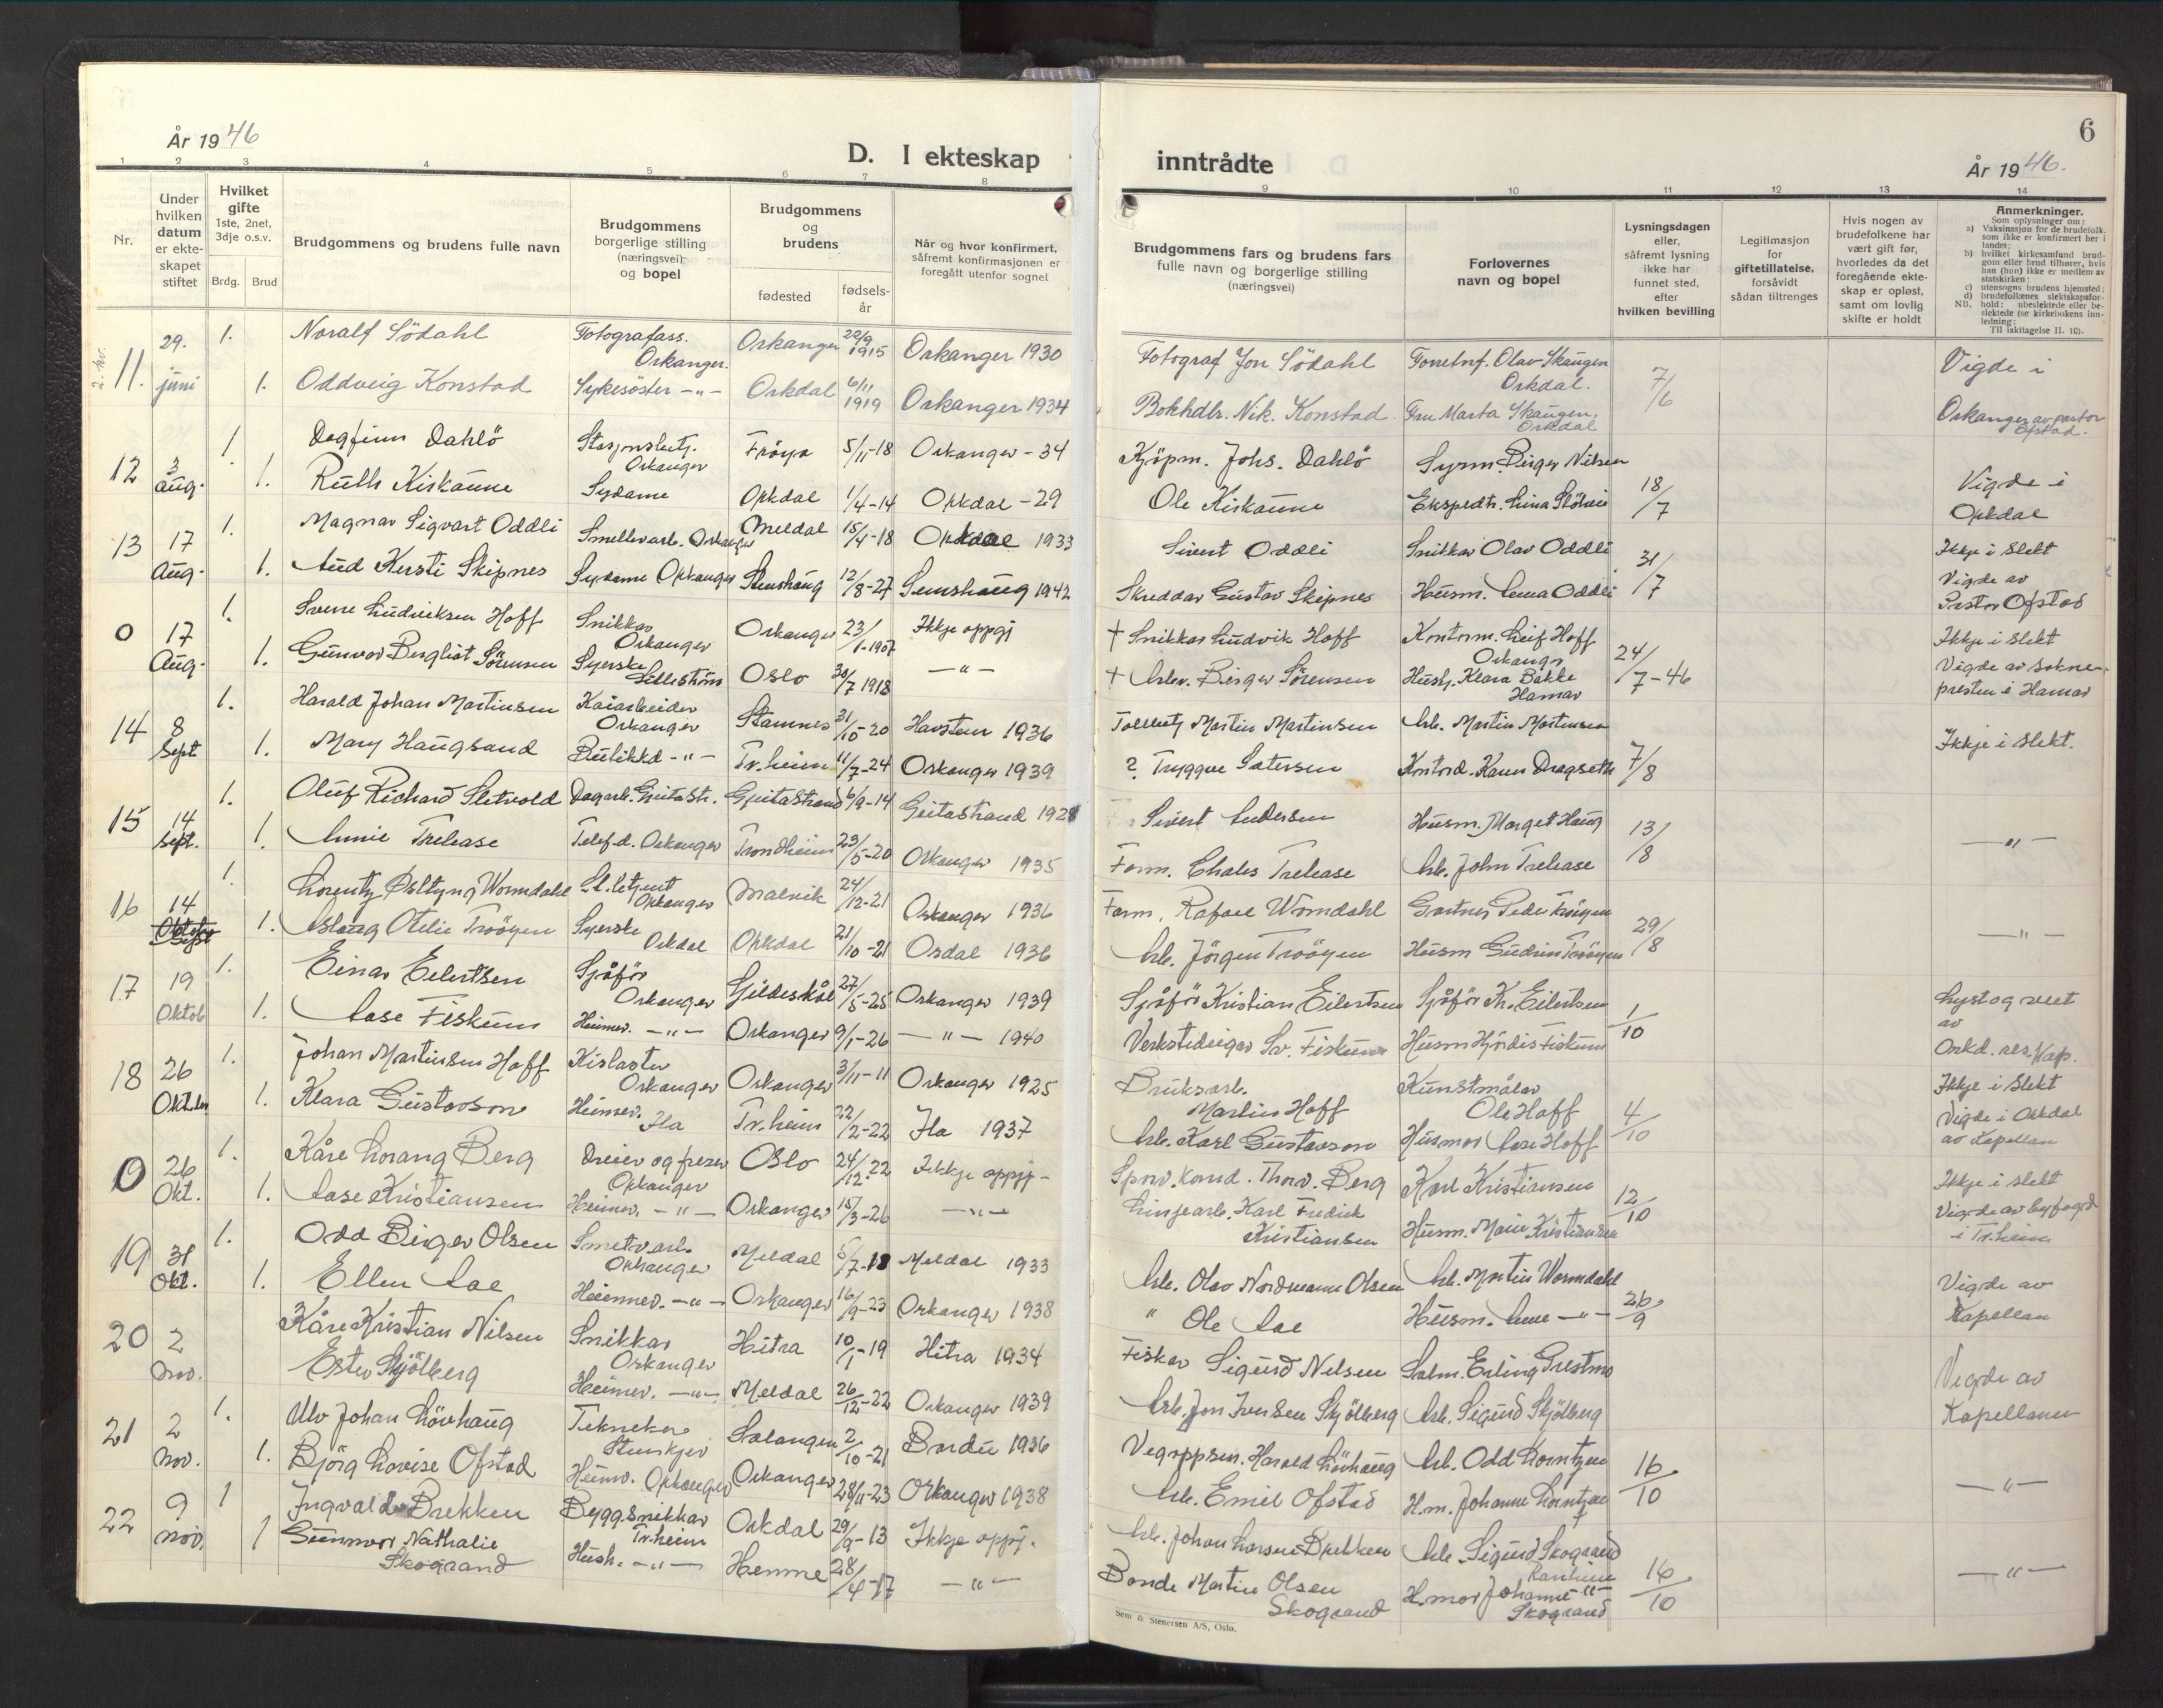 År 1946
D. I ekteskap
1 2 3 4 5 6 7 8
Nr.
Under hvilken datum er ekte-skapet stiftet
Hvilket gifte 1ste, 2net, 3dje o.s.v.
Brdg. Brud
Brudgommens og brudens fulle navn
Brudgommens borgerlige stilling (næringsvei) og bopel
Brudgommens og brudens
fødested
fødsels-år
Når og hvor konfirmert, såfremt konfirmasjonen er foregått utenfor sognet
11. 29. 1. Noralf Södahl Fotografass. Orkanger. Orkanger 1915 Orkanger 1930
juni 1. Oddveig Konstad Sykesöster -"- Orkdal 6/11 1919 Orkanger 1934
12 3 1. Dagfinn Dahlö Orkanger Fröya 5/11-18 Orkanger -34
aug. 1. Ruth Kiskaune Sydame Orkdal 1/4-14 Orkdal -29
13 17 1. Magnar Sigvart Oddli Smelteverk. Orkanger Meldal 15/4-18 Orkdal 1933
Aug. 1. Aud Kersti Skipnes Sydame Orkanger 12/8-27 1942
0 17 1. Sverre Ludviksen Hoff Snikkar Orkanger Orkanger 23/1-1907 Ikkje oppgj
Aug. 1. Gunvor Bergliot Sørensen Syerske Lilleström Oslo 30/7 1918 -"-
14 8 1. Harald Johan Martinsen Kaiarbeider Orkanger Stamnes 31/10-20 Harstad 1936
Sept 1. Mary Haugsand -"- Tr.heim 11/7-24 Orkanger 1939
15 14 1. Oluf Richard Sletvold Dagarb. Geitastr. Geitastrand 6/9-14 Geitastrand 1928
Sept. 1. Annie Trelease Telef.d. Orkanger Trondheim 23/5-20 Orkanger 1935
16 14 1. Lorentz Wormdahl Orkanger Malvik 24/12-21 Orkanger 1936
Sept 1. Aslaug Otelie Trööyen Syerske Orkdal Orkdal 21/10-21 Orkdal 1936
17 19 1. Einar Eilertsen Sjåför Orkanger Gildeskål 27/5-25 Orkanger 1939
Oktob 1. Aase Fiskum Heimev. -"- Orkanger 9/1-26 -"- 1940
18 26 1. Johan Martinsen Hoff Kislaster Orkanger Orkanger 3/11-11 Orkanger 1925
1. Klara Gustavson Heimev. Ila Tr.heim 22/2-22 Ila 1937
0 26 1. Kåre Lorang Berg Dreier og freser Orkanger Oslo 24/12-22 Ikkje oppgj-
Okt. 1. Aase Kristiansen Heimev. -"- Orkanger 15/3-26 -"-
19 31 1. Odd Birger Olsen Smelt.arb. Orkanger Meldal 5/7-18 Meldal 1933
Okt. 1. Ellen Aae Heimev. -"- Orkanger 16/9-23 Orkanger 1938
20 2 Kåre Kristian Nilsen Snikkar Orkanger Hitra 10/1-19 Hitra 1934
nov. Ester Skjölberg Heimev. -"- Meldal 26/12-22 Orkanger 1939
21 2 1. Ulv Johan Lövhaug Tekneker Steinkjer Salangen 2/10-21 Bardu 1936
nov. 1. Björg Lovise Ofstad Heimev. Orkanger Orkanger 28/11-23 Orkanger 1938
22 9 1 Ingvald Brekken Byggsnikkar Tr.heim Orkdal 29/9-13 Ikkje oppgj.
nov. 1 Gunnvor Nathalie Skograand Hush. -"- Hemne 28/4-17 -"-
6
inntrådte
År 1946.
9 10 11 12 13 14
Brudgommens fars og brudens fars fulle navn og borgerlige stilling (næringsvei)
Forlovernes navn og bopel
Lysningsdagen eller, såfremt lysning ikke har funnet sted, efter hvilken bevilling
Legitimasjon for giftetillatelse, forsåvidt sådan tiltrenges
Hvis nogen av brudefolkene har vært gift før, hvorledes da det foregående ekte-skap er opløst, samt om lovlig skifte er holdt
Anmerkninger.
Som oplysninger om:
a) Vaksinasjon for de brudefolk, som ikke er konfirmert her i landet;
b) hvilket kirkesamfund brud-gom eller brud tilhører, hvis han (hun) ikke er medlem av statskirken;
c) utensogns brudens hjemsted;
d) brudefolkenes slektskapsfor-hold: ubeslektede eller be-slektede (se kirkebokens inn-ledning;
NB. Til iakttagelse II. 10).
Fotograf Jon Södahl Forretnf. Olav Skaugen Orkdal. 7/6 Vigde i
Bokhdlr. Nik. Konstad Fru Marta Skaugen, Orkdal Orkanger av pastor Ofstad.
Kjöpm. Johs. Dahlö Birger Nilsen 18/7 Vigde i
Ole Kiskaune Orkdal
Sivert Oddli Snikkar Olav Oddli 31/7 Ikkje i slekt
Skreddar Gustav Skipnes Husm. Anna Oddli Vigde av Pastor Ofstad
† Snikkar Ludvik Hoff Kontorm. Leif Hoff Orkanger 24/7-46 Ikkje i slekt
† Arbev. Birger Sørensen Hush. Klara Bakke Hamar Vigde av sokne-presten i Hamar
Tollbetj Martin Martinsen Arb. Martin Martinsen 7/8 Ikkje i slekt.
? Tryggve Kontord. Karen Dragseth
Sivert Andersen Husm. Marget Haug 13/8 -"-
Form. Chales Trelease Arb. John Trelease
Form. Rafael Wormdahl Gartner Peder Trööyen 29/8 -"-
Arb. Jörgen Trööyen Husm Gudrun Trööyen
Sjåför Kristian Eilertsen Sjåför Kr. Eilertsen 1/10 Lyst og viet av
Sv. Fiskum Husm Hjördis Fiskum Orkd. res. kap.
Bruksarb. Martin Hoff Kunstmåler Ole Hoff 4/10 Ikkje i slekt
Arb. Karl Gustavson Husmor Aase Hoff Vigde i Orkdal av kapellan
Sporv.kond. Thorv. Berg Karl Kristiansen 12/10 Ikkje i slekt
Linjearb. Karl Fredrik Kristiansen Husm. Marie Kristiansen Vigde av byfogd i Tr.heim
Arb. Olav Nordmann Olsen Arb. Martin Wormdahl 26/9 Vigde av
" Ole Aae Husm. Anne -"- Kapellan
Fisker Sigurd Nilsen Salm. Erling Prestmo Vigde av
Arb. Jon Iversen Skjölberg Arb. Sigurd Skjölberg Kapellanen
Vegoppsm. Harald Lövhaug Arb. Odd Lorntzen 16/10 -"-
Arb. Emil Ofstad H.m. Johanne Lorntzen
Arb. Johan Larsen Brekken Arb. Sigurd Skograand 16/10 -"-
Bonde Martin Olsen Skograand H.mor Johanne -"- Skograand
Sem & Stenersen A/S, Oslo.